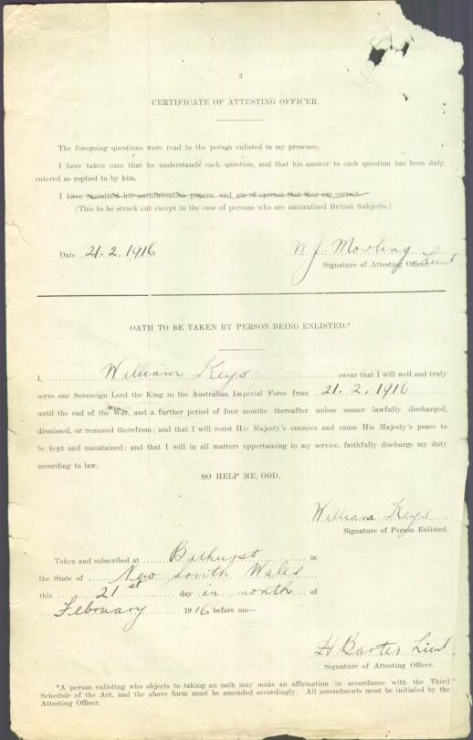 2
CERTIFICATE OF ATTESTING OFFICER.
The foregoing questions were read to the person enlisted in my presence.
I have taken care that he understands each question, and that his answer to each question has been duly
entered as replied to by him.
I have examined his naturalization papers, and am of opinion that they are correct.
(This to be struck out except in the case of persons who are naturalized British Subjects.)
Date 21.2.1916
N J. Mowling Lieut
Signature of Attesting Officer.
OATH TO BE TAKEN BY PERSON BEING ENLISTED.*
I, William Keys swear that I will well and truly
serve our Sovereign Lord the King in the Australian Imperial Force from 21.2.1916
until the end of the War, and a further period of four months thereafter unless sooner lawfully discharged,
dismissed, or removed therefrom; and that I will resist His Majesty's enemies and cause His Majesty's peace to
be kept and maintained; and that I will in all matters appertaining to my service, faithfully discharge my duty
according to law.
SO HELP ME, GOD.
William Keys
Signature of Person Enlisted.
Taken and subscribed at Bathurst in
the State of New South Wales
this 21st day in month of
February 1916 before me—
H Barter Lieut
Signature of Attesting Officer.
*A person enlisting who objects to taking an oath may make an affirmation in accordance with the Third
Schedule of the Act, and the above form must be amended accordingly. All amendments must be initialed by the
Attesting Officer.